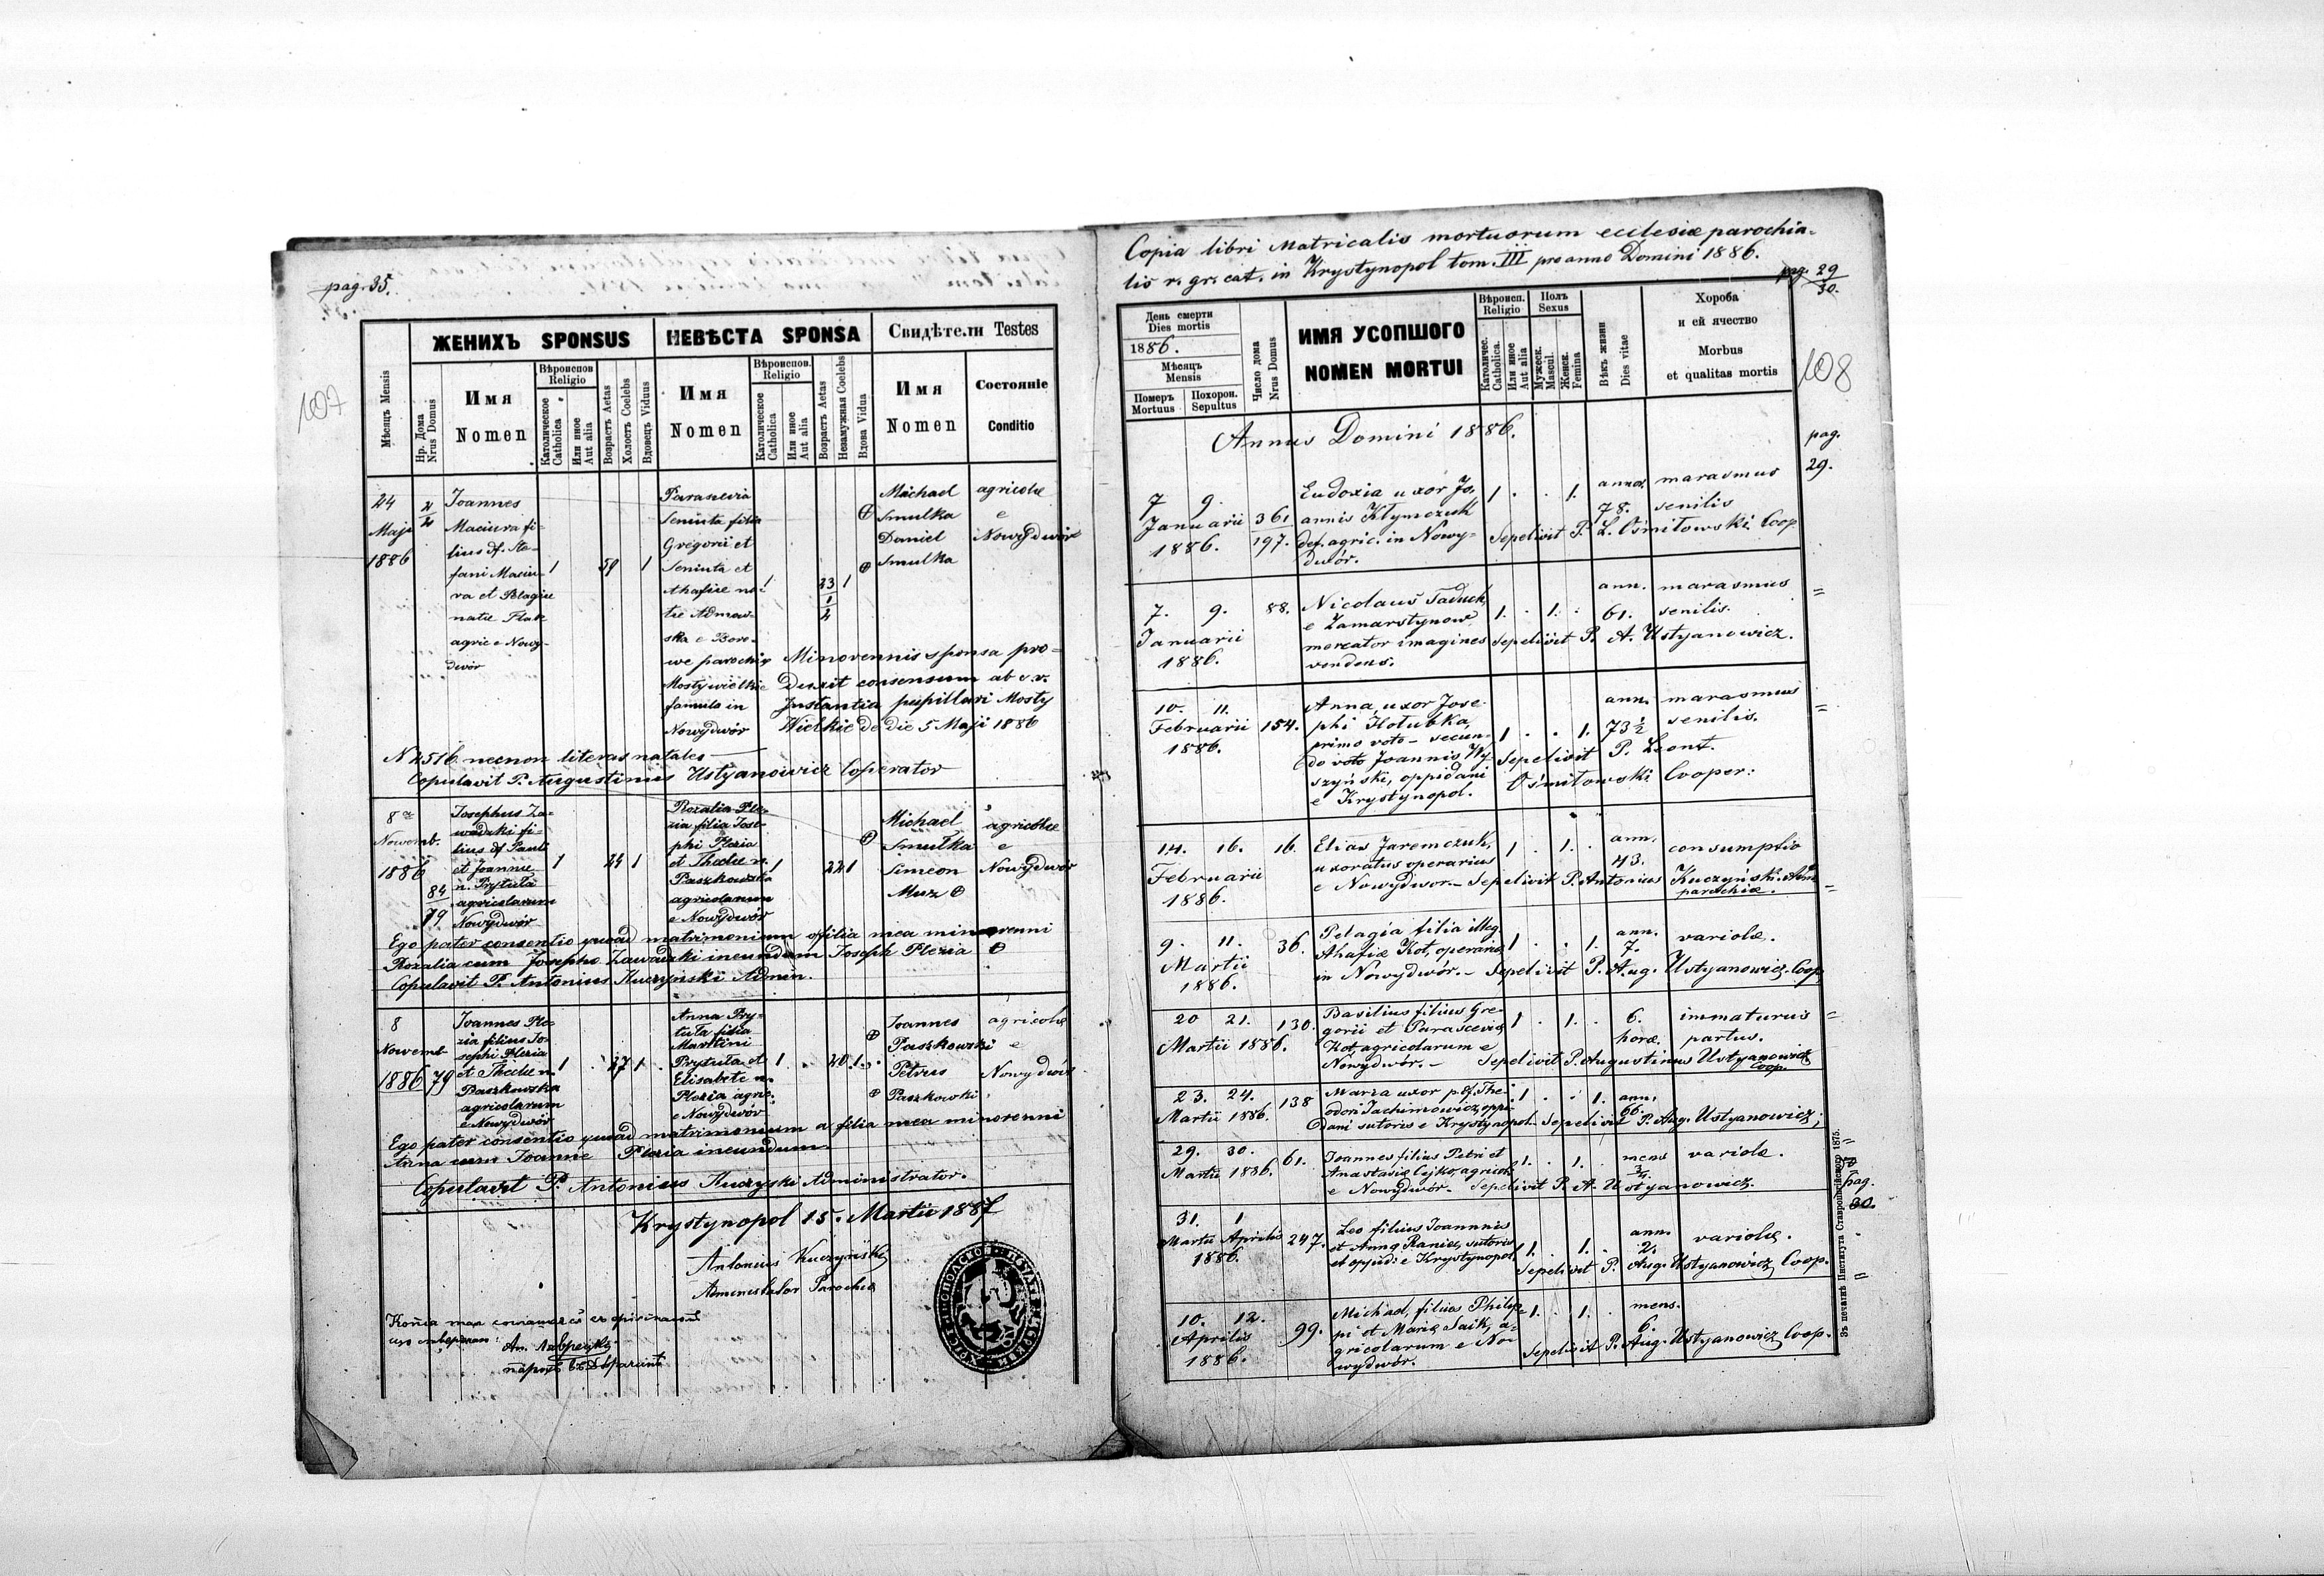 pag. 35.
107
ЖЕНИХЪ SPONSUS
НЕВѢСТА SPONSA
Свидѣтели Testes
Мѣсяцъ Mensis
Нр. Дома
Nrus Domus
Имя
Nomen
Вѣроиспов
Religio
Католическое
Catholica
Или иное
Aut alia
Возрастъ Aetas
Холостъ Coelebs
Вдовецъ Viduus
Имя
Nomen
Вѣроиспов.
Religio
Католическое
Catholica
Или иное
Aut alia
Возрастъ Aetas
Незамужная Coelebs
Вдова Vidua
Имя
Nomen
Состояніе
Conditio
24
Maji
1886
Joannes
Maciura fi-
lius df. Ste-
fani Maciu-
ra et Pelagiae
natae Flak
agric e Nowy-
dwór
1
1
Parascevia
Seniuta filia
Gregorii et
Seniuta et
Ahafiae na-
tae
ska e Bore-
we parochiae
Mosty wielkie
famula in
Nowydwór
1
23
1
Michael
Smulka
Daniel
Smulka
agricolae
e
Nowydwór
Minorennis sponsa pro-
Duxit consensum ab
Instantia pupillari Mosty
Wielkie de die 5 Maji 1886
N 2516 necnon literas natales
Copulavit P. Augustinus Ustyanowicz Coperator
8
Novemb.
1886
84
79
Josephus Za-
wadzki fi-
lius df Pauli
et Joannae
n. Prytuła
agricolarum
Nowydwór
1
24
1
Rozalia Ple-
zia filia Jose-
phi Plezia
et Theclae n.
Paszkowska
agricolarum
e Nowydwór
1
22
1
Michael
Smulka
Simeon
Muz
agricolae
e
Nowydwór
Ego pater consentio quoad matrimonium a filia mea minorenni
Rozalia cum Josepho Zawadzki ineundum Joseph Plezia
Copulavit P. Antonius Kuczyński Admin.
8
Novemb
1886
79
Joannes Ple-
zia filius Jo-
sephi Plezia
et Theclae n.
Paszkowska
agricolarum
e Nowydwór
1
27
1
Anna Pry-
tuła filia
Martini
Prytuła et
Elisabete n.
Plezia agric.
e Nowydwór
1
20
1
Joannes
Paszkowski
Petrus
Paszkowski
agricolae
e
Nowydwór
Ego pater consentio quoad matrimonium a filia mea minorenni
Anna cum Joanne Plezia ineundum
Copulavit P. Antonius Kuczyski Administrator.
Krystynopol 15. Martii 1887
Antonius Kuczyński
Administrator Parochiae
Copia libri Matricalis mortuorum ecclesiae parochia-
lis r. gr. cat. in Krystynopol tom. III pro anno Domini 1886.
pag. 29
30.
108
День смерти
Dies mortis
1886.
Мѣсяцъ
Mensis
Померъ
Mortuus
Похорон.
Sepultus
Число дома
Nrus Domus
ИМЯ УСОПШОГО
NOMEN MORTUI
Вѣроисп.
Religio
Католичес.
Catholica.
Или иное
Aut alia
Полъ
Sexus
Мужеск.
Mascul.
Женск.
Femina
Вѣкъ жизни
Dies vitae
Хороба
и ей ячество
Morbus
et qualitas mortis
Annus Domini 1886.
pag.
29.
7
9.
Januarii
1886.
361
197.
Eudoxia uxor Jo-
annis Kłymczuk
def. agric. in Nowy-
dwór.
1
1.
annor.
78.
marasmus
senilis
Sepelivit P. L. Ośmiłowski Coop
7.
9.
Januarii
1886.
88.
Nicolaus Taduch,
e Zamarstynow
mercator imagines
vendens.
1.
1.
ann.
61.
marasmus
senilis.
Sepelivit P. A. Ustyanowicz.
10.
11.
Februarii
1886.
154.
Anna, uxor Jose-
phi Hołubka,
primo voto - secun-
do voto Joannis Wy-
szyński, oppidani
e Krystynopol.
1
1.
ann.
73½
marasmus
senilis.
Sepelivit P. Leont.
Ośmiłowski Cooper:
14.
16.
Februarii
1886.
16.
Elias Jaremczuk,
uxoratus operarius
e Nowydwor.
1
1.
ann.
43.
consumptio
Sepelivit P. Antonius Kuczyński Adm
parochiae.
9.
11.
Martii
1886.
36.
Pelagia filia illeg.
Ahafiae Kot, operariae
in Nowydwór.
1
1.
ann.
7.
variolae.
Sepelivit P. Aug. Ustyanowicz Coop.
20
21.
Martii 1886.
130.
Basilius filius Gre-
gorii et Parasceviae
Kot, agricolarum e
Nowydwór.
1
1.
6.
horae.
immaturus
partus.
Sepelivit P. Augustinus Ustyanowicz
Coop.
23.
24.
Martii 1886.
138
Maria uxor p. df. The-
odori Jachimowicz, oppi-
dani sutoris e Krystynopol.
1
1.
ann.
66.
Sepelivit P. Aug. Ustyanowicz
29.
30.
Martii 1886.
61.
Joannes filius Petri et
Anastasiae Cejko, agricol.
e Nowydwór.
1.
1.
mens
¾
variolae.
Sepelivit P. A. Ustyanowicz.
pag.
30.
31.
1
Martii Aprilis
1886.
247.
Leo filius Joannis
et Annae Rania, sutoris
et oppid: e Krystynopol.
1.
1.
ann.
2.
variolae.
Sepelivit P. Aug. Ustyanowicz Coop.
10.
12.
Aprilis
1886.
99.
Michael, filius Philip-
pi et Mariae Saik, a-
gricolarum e No-
wydwór.
1.
1.
mens.
6.
Sepelivit P. Aug. Ustyanowicz Coop.
Зъ печатнѣ Института Ставропигійского 1875.